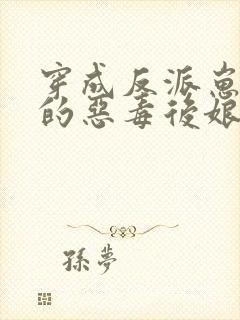 穿成反派崽
的惡毒後娘
孫夢